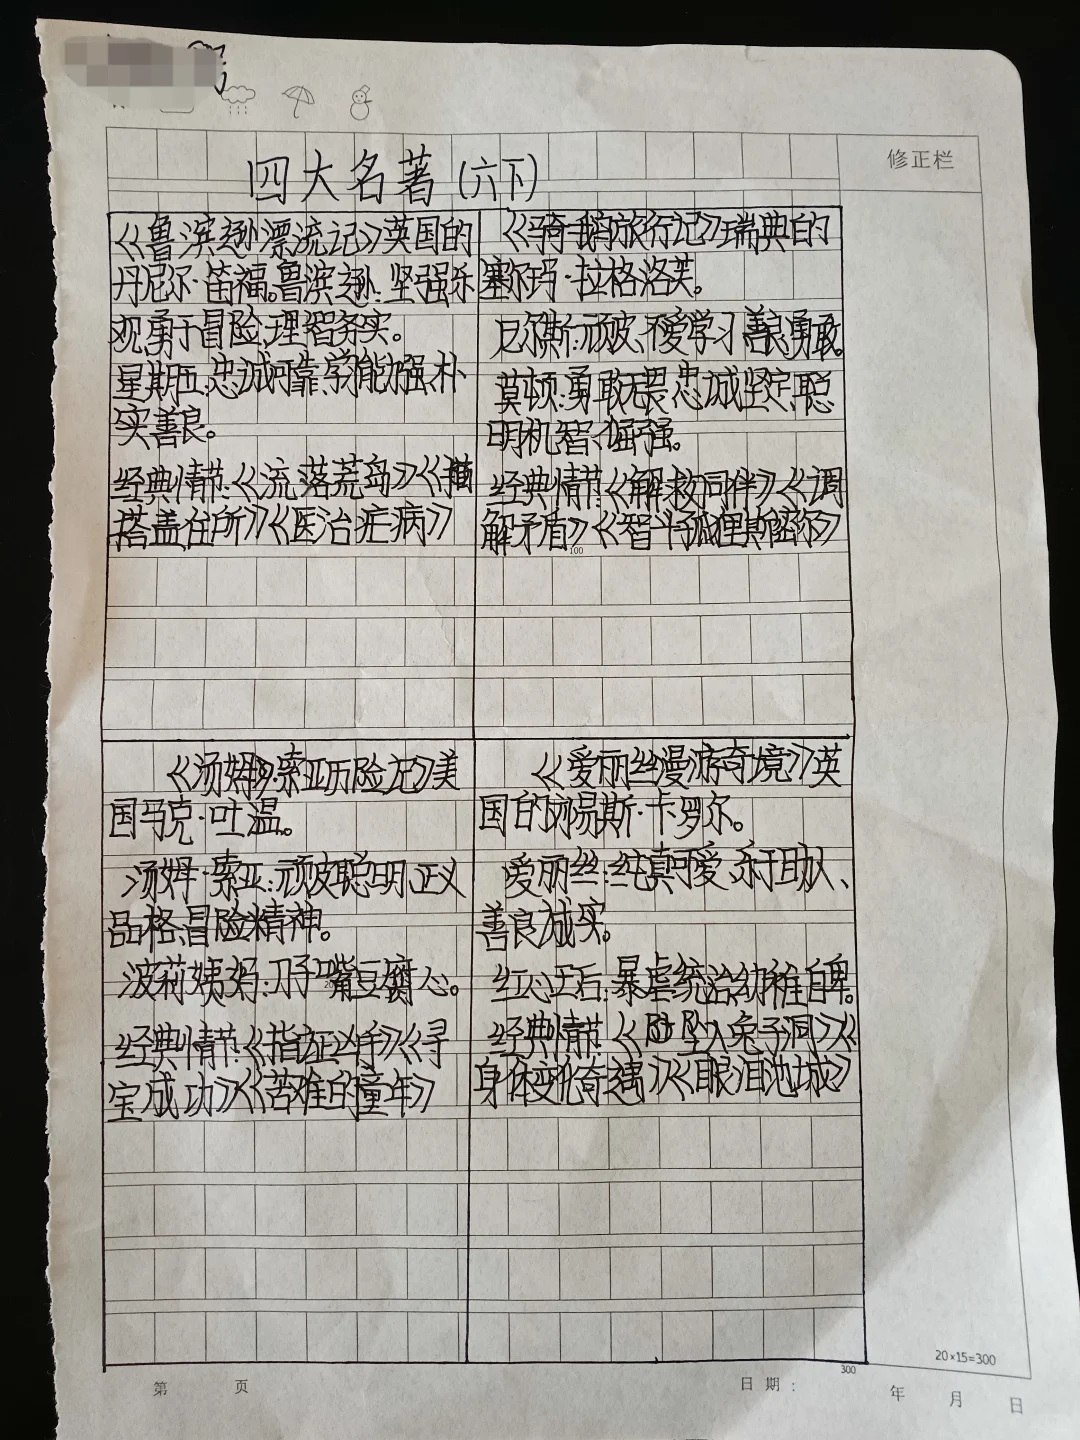 修正栏
四大名著(六下)
《鲁滨逊漂流记》英国的
丹尼尔·笛福。鲁滨逊:坚强乐
观勇于冒险,理智务实。
星期五:忠诚可靠,学能力强、朴
实善良。
经典情节:《流落荒岛》《
搭盖住所》《医治疟病》
《骑鹅旅行记》瑞典的
塞尔玛·拉格洛芙。
尼尔斯:顽皮、不爱学习善良,勇敢。
莫顿:勇敢无畏、忠诚坚定、聪
明机智、倔强。
经典情节:《解救同伴》《调
解矛盾》《智斗狐狸斯密尔》
100
《汤姆·索亚历险记》美
国马克·吐温。
汤姆·索亚:顽皮聪明,正义
品格,冒险精神。
波莉姨妈:刀子嘴豆腐心。
经典情节:《指证凶手》《寻
宝成功》《苦难的童年》
《爱丽丝漫游奇境》英
国的刘易斯·卡罗尔。
爱丽丝:纯真可爱、乐于助人、
善良诚实。
红心王后:暴虐统治,幼稚自卑。
经典情节:《坠入兔子洞》《
身体变化奇遇》《眼泪池城》
300
20×15=300
第 页
日期: 年 月 日